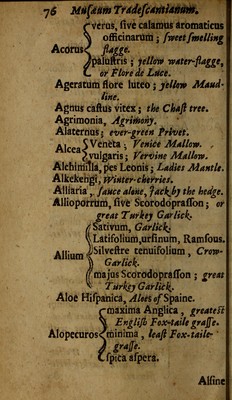 76 Musæum Tradescantianum.
verus, sive calamus aromaticus
officinarum ; sweet smelling
Acorus flagge.
palustris ; yellow water-flagge,
or Flore de Luce.
Ageratum flore luteo ; yellow Maud-
line.
Agnus castus vitex ; the Chast tree.
Agrimonia, Agrimony.
Alaternus ; ever-green Privet.
Alcea Veneta ; Venice Mallow.
vulgaris ; Vervine Mallow.
Alchimilla, pes Leonis ; Ladies Mantle.
Alkekengi, Winter-cherries.
Alliaria, sauce alone, Jack by the hedge.
Állioporrum, sive Scorodoprasson ; or
great Turkey Garlick.
Sativum, Garlick.
Latifolium, ursinum, Ramsous.
Allium Silvestre tenuifolium, Crow-
Garlick.
majus Scorodoprasson ; great
Turkey Garlick.
Aloe Hispanica, Aloes of Spaine.
maxima Anglica, greatest
English Fox-taile grasse.
Alopecuros minima, least Fox-taile-
grasse.
spica aspera.
Alsine